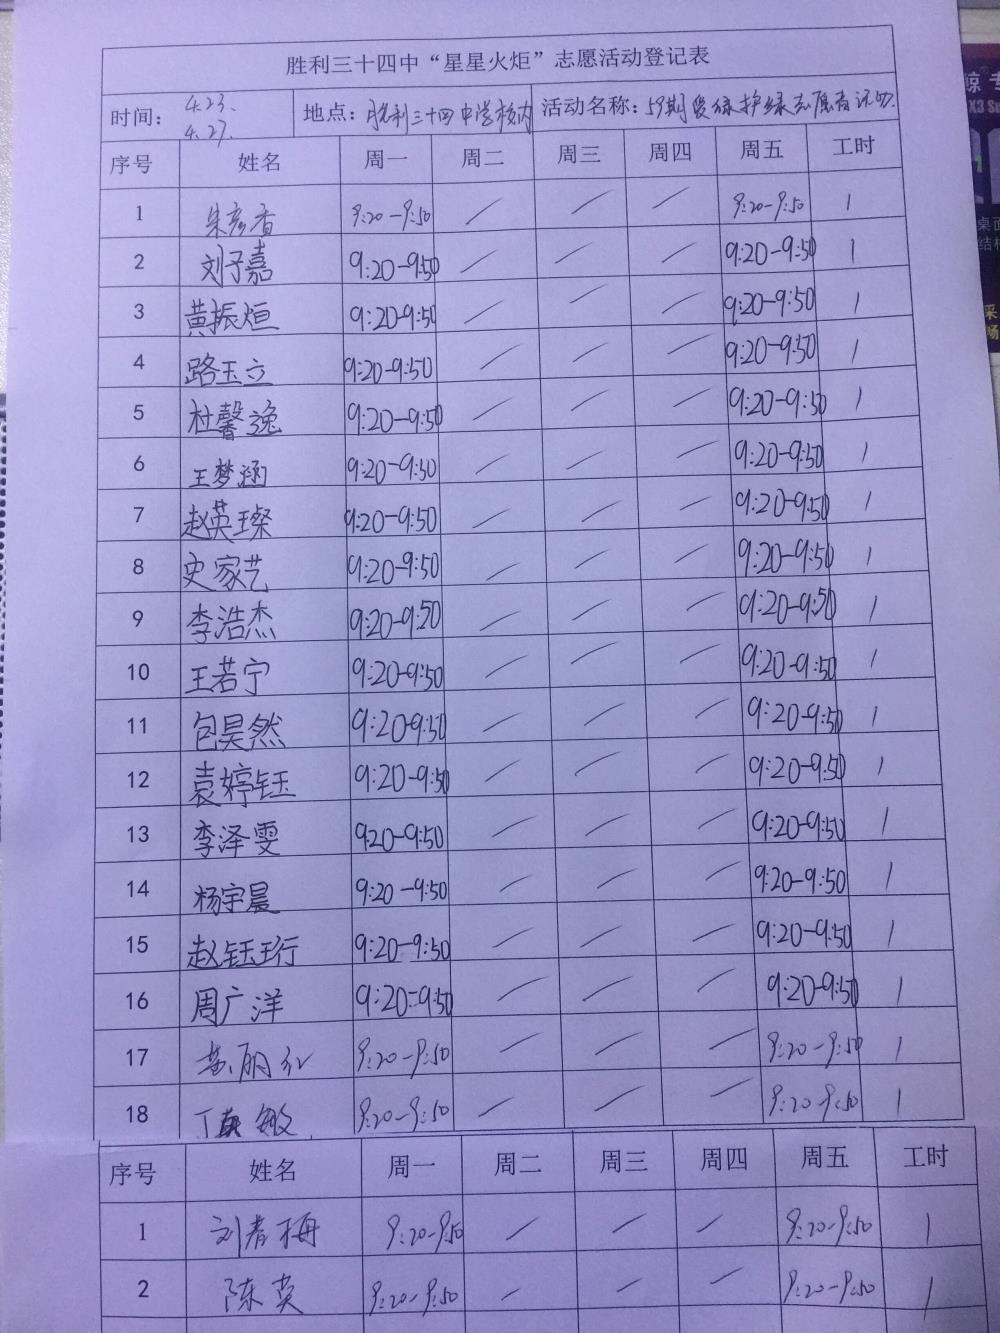 胜利三十四中“星星火炬”志愿活动登记表
时间： 4.23. 4.27. 地点：胜利三十四中学校内 活动名称：59期爱绿护绿志愿者活动.
序号 姓名 周一 周二 周三 周四 周五 工时
1 朱彦香 9:20-9:50 / / / 9:20-9:50 1
2 刘子嘉 9:20-9:50 / / / 9:20-9:50 1
3 黄振烜 9:20-9:50 / / / 9:20-9:50 1
4 路玉立 9:20-9:50 / / / 9:20-9:50 1
5 杜馨逸 9:20-9:50 / / / 9:20-9:50 1
6 王梦涵 9:20-9:50 / / / 9:20-9:50 1
7 赵英璨 9:20-9:50 / / / 9:20-9:50 1
8 史家艺 9:20-9:50 / / / 9:20-9:50 1
9 李浩杰 9:20-9:50 / / / 9:20-9:50 1
10 王若宁 9:20-9:50 / / / 9:20-9:50 1
11 包昊然 9:20-9:50 / / / 9:20-9:50 1
12 袁婷钰 9:20-9:50 / / / 9:20-9:50 1
13 李泽雯 9:20-9:50 / / / 9:20-9:50 1
14 杨宇晨 9:20-9:50 / / / 9:20-9:50 1
15 赵钰珩 9:20-9:50 / / / 9:20-9:50 1
16 周广洋 9:20-9:50 / / / 9:20-9:50 1
17 丽红 9:20-9:50 / / / 9:20-9:50 1
18 丁真敏 9:20-9:50 / / / 9:20-9:50 1
序号 姓名 周一 周二 周三 周四 周五 工时
1 刘春梅 9:20-9:50 / / / 9:20-9:50 1
2 陈英 9:20-9:50 / / / 9:20-9:50 1